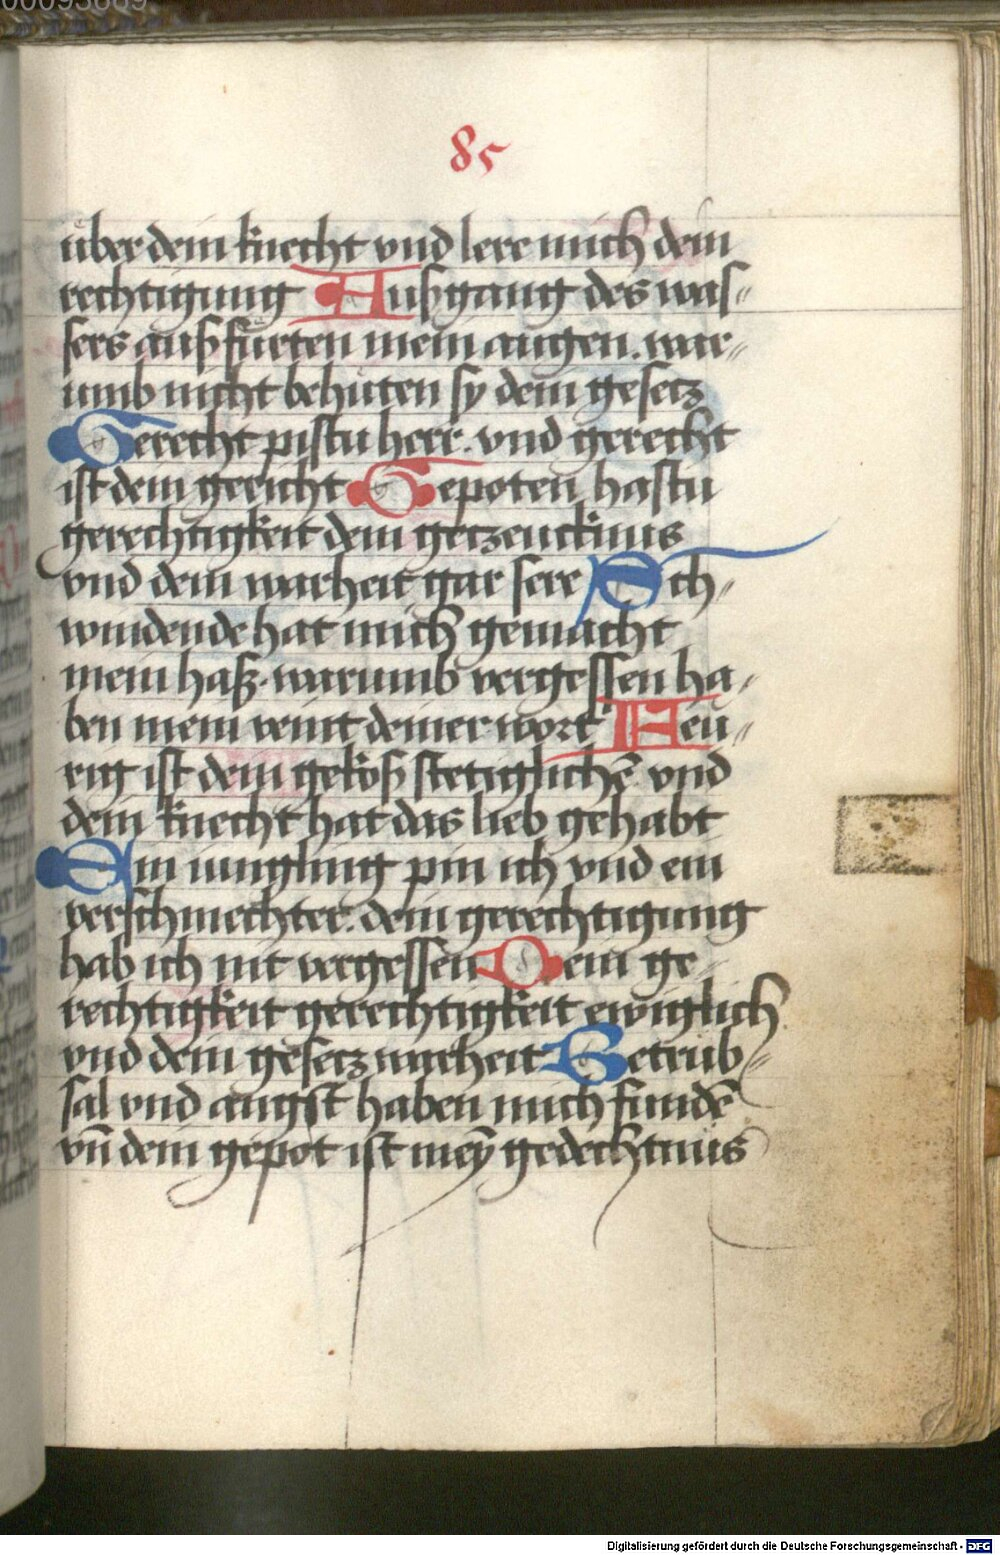 85
über dein knecht vnd lere mich dein
rechtigung Außgang des was⸗
sers außfürten mein augen. war⸗
umb nicht behüten sy dein gesetz
Gerecht pistu herr. vnd gerecht
ist dein gericht Gepoten hastu
gerechtigkeit dein getzeucknus
vnd dein warheit gar sere Sch⸗
windende hat mich gemacht
mein haß. warumb vergessen ha⸗
ben mein veint deiner wort Feu⸗
rig ist dein gekoß stetiglichē vnd
dein knecht hat das lieb gehabt
Ein iungling pin ich vnd ein
verschmechter. dein gerechtigung
hab ich nit vergessen Dein ge⸗
rechtigkeit gerechtigkeit ewiglich
vnd dein gesetz warheit Betrub⸗
sal vnd angst haben mich fundē
vn̄ dein gepot ist mein gedechtnus
Digitalisierung gefördert durch die Deutsche Forschungsgemeinschaft - DFG